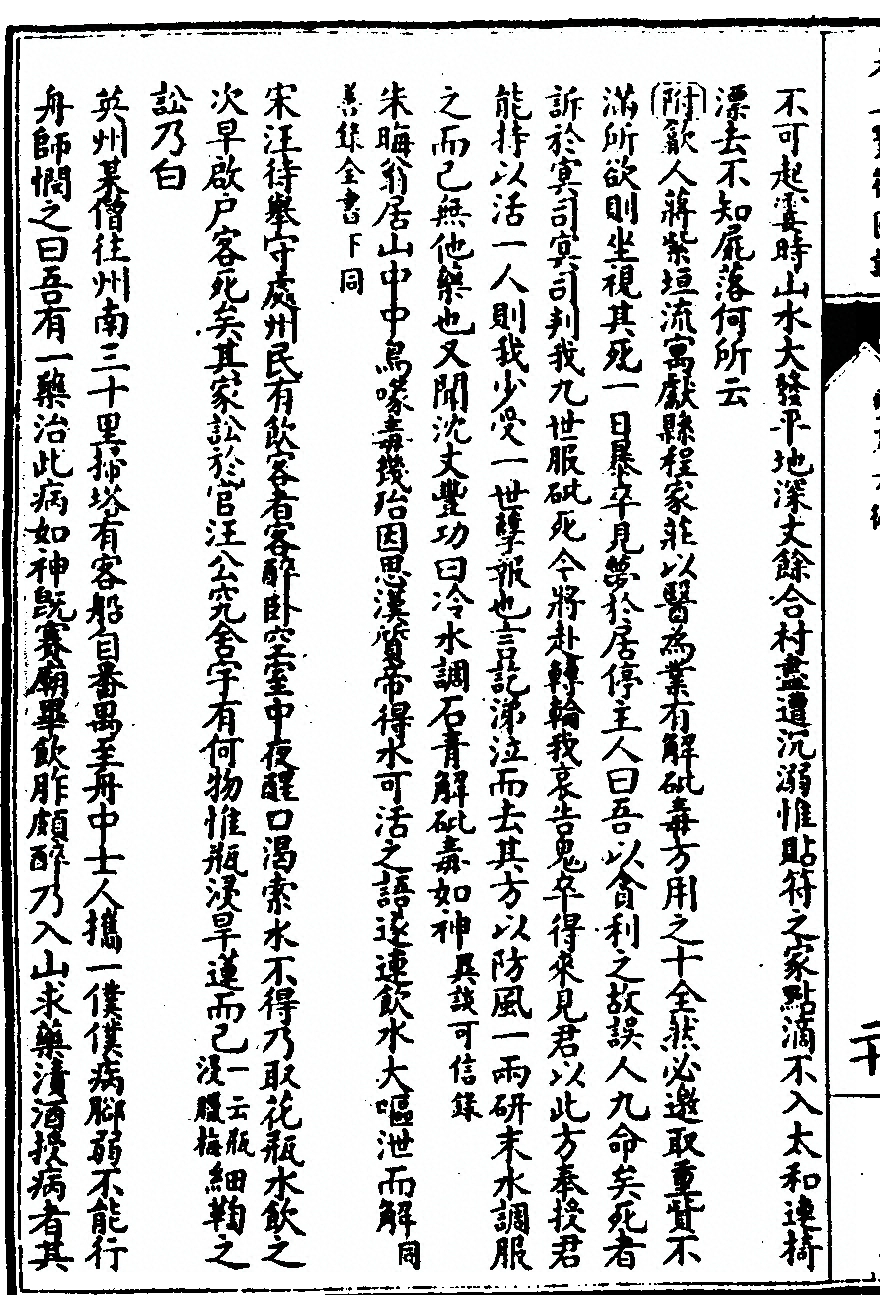 不可起霎時山水大發平地深丈餘合村盡遭沉溺惟貼符之家點滴不入太和連椅
漂去不知屍落何所云
附歙人蔣紫垣流寓獻縣程家莊以醫為業有解砒毒方用之十全然必邀取重貲不
滿所欲則坐視其死一日暴卒見夢於居停主人曰吾以貪利之故誤人九命矣死者
訴於冥司冥司判我九世服砒死今將赴轉輪我哀告鬼卒得來見君以此方奉授君
能持以活一人則我少受一世孽報也言訖涕泣而去其方以防風一兩研末水調服
之而已無他藥也又聞沈丈豐功曰冷水調石青解砒毒如神異談可信錄
朱晦翁居山中中烏喙毒幾殆因思漢質帝得水可活之語遂連飲水大嘔泄而解同
善錄全書下同
宋汪待舉守處州民有飲客者客醉卧空室中夜醒口渴索水不得乃取花瓶水飲之
次早啟户客死矣其家訟於官汪公究舍宇有何物惟瓶浸旱蓮而已一云瓶浸臘梅細鞫之
訟乃白
英州某僧往州南三十里掃塔有客船自番禺至舟中士人攜一僕僕病脚弱不能行
舟師憫之曰吾有一藥治此病如神既賽廟畢飲胙頗醉乃入山求藥漬酒授病者其
二十